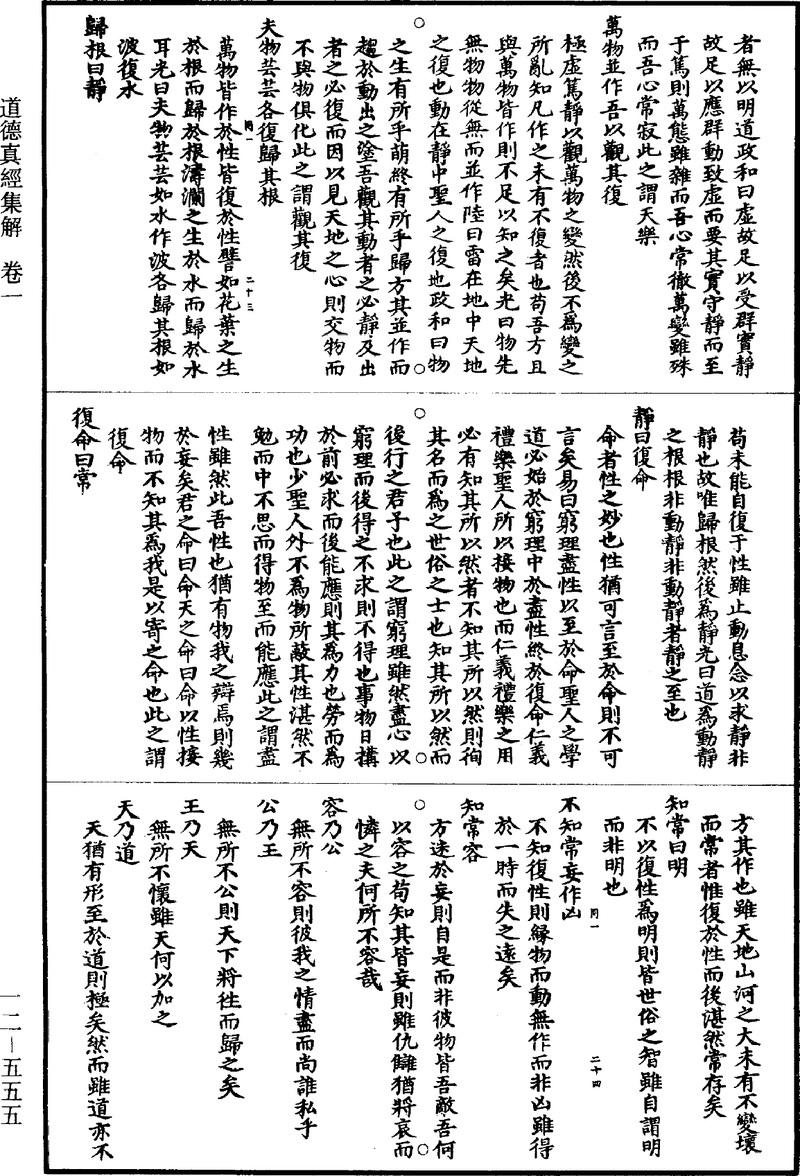 道德真經集解　卷一
者無以明道政和曰虛故足以受群實靜
故足以應群動致虛而要其實守靜而至
于篤則萬態雖雜而吾心常徹萬變雖殊
而吾心常寂此之謂天樂
萬物並作吾以觀其復
極虛篤靜以觀萬物之變然後不為變之
所亂知凡作之未有不復者也苟吾方且
與萬物皆作則不足以知之矣光曰物先
無物物從無而並作陸曰雷在地中天地
之復也動在靜中聖人之復地政和曰物
之生有所乎萌終有所乎歸方其並作而
趨於動出之塗吾觀其動者之必靜及出
者之必復而因以見天地之心則交物而
不與物俱化此之謂觀其復
夫物芸芸各復歸其根
同一
二十三
萬物皆作於性皆復於性譬如花葉之生
於根而歸於根濤瀾之生於水而歸於水
耳光曰夫物芸芸如水作波各歸其根如
波復水
歸根曰靜
苟未能自復于性雖止動息念以求靜非
靜也故唯歸根然後為靜光曰道為動靜
之根根非動靜非動靜者靜之至也
靜曰復命
命者性之妙也性猶可言至於命則不可
言矣易曰窮理盡性以至於命聖人之學
道必始於窮理中於盡性終於復命仁義
禮樂聖人所以接物也而仁義禮樂之用
必有知其所以然者不知其所以然則徇
其名而為之世俗之士也知其所以然而
後行之君子也此之謂窮理雖然盡心以
窮理而後得之不求則不得也事物日搆
於前必求而後能應則其為力也勞而為
功也少聖人外不為物所蔽其性湛然不
勉而中不思而得物至而能應此之謂盡
性雖然此吾性也猶有物我之辯焉則幾
於妄矣君之命曰命天之命曰命以性接
物而不知其為我是以寄之命也此之謂
復命
復命曰常
方其作也雖天地山河之大未有不變壞
而常者惟復於性而後湛然常存矣
知常曰明
不以復性為明則皆世俗之智雖自謂明
而非明也
同一
二十四
不知常妄作凶
不知復性則緣物而動無作而非凶雖得
於一時而失之遠矣
知常容
方迷於妄則自是而非彼物皆吾敵吾何
以容之苟知其皆妄則雖仇讎猶將哀而
憐之夫何所不容哉
容乃公
無所不容則彼我之情盡而尚誰私乎
公乃王
無所不公則天下將往而歸之矣
王乃天
無所不懷雖天何以加之
天乃道
天猶有形至於道則極矣然而雖道亦不
一二－五五五